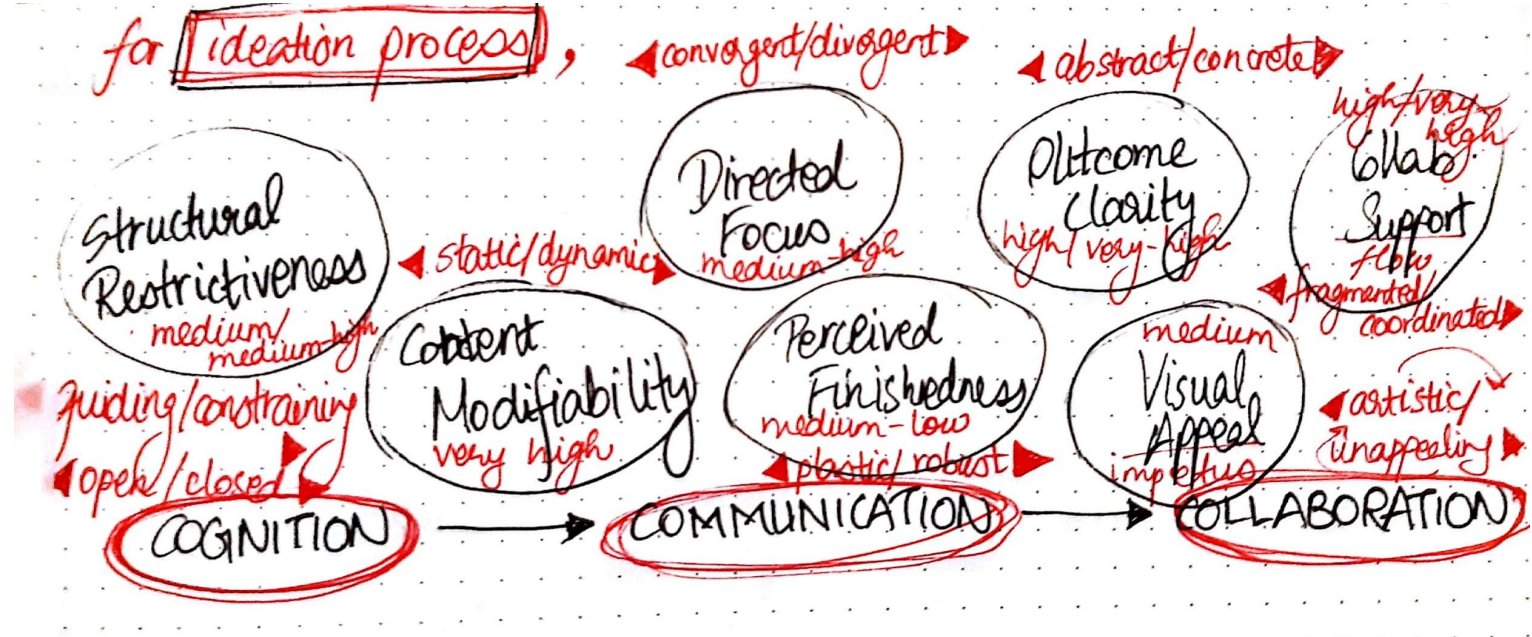 for ideation process,
convergent/divergent
abstract/concrete
high/very-
high
Structural
Restrictiveness
medium/
medium-high
static/dynamic
Directed
Focus
medium-high
Outcome
Clarity
high/very-high
Collab
Support
flow
fragmented/
coordinated
guiding/constraining
open/closed
Content
Modifiability
very high
Perceived
Finishedness
medium-low
plastic/robust
medium
Visual
Appeal
impletus
artistic/
unappeeling
COGNITION
COMMUNICATION
COLLABORATION